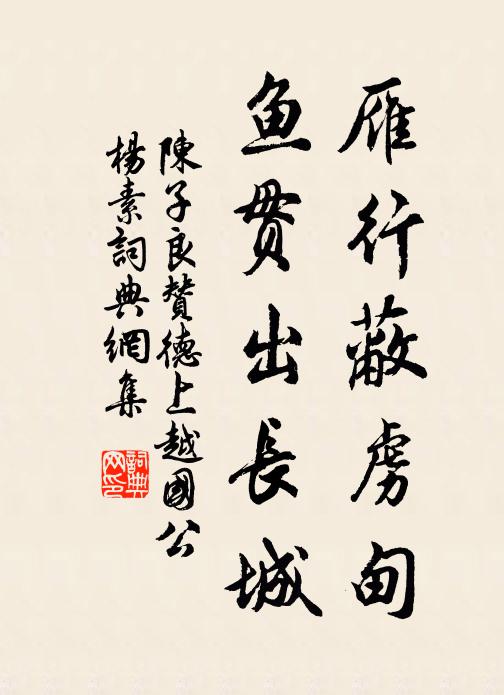 雁行蔽虏甸
鱼贯出長城
陳子良贊德上越國公
楊素詞典網集
詞典网印